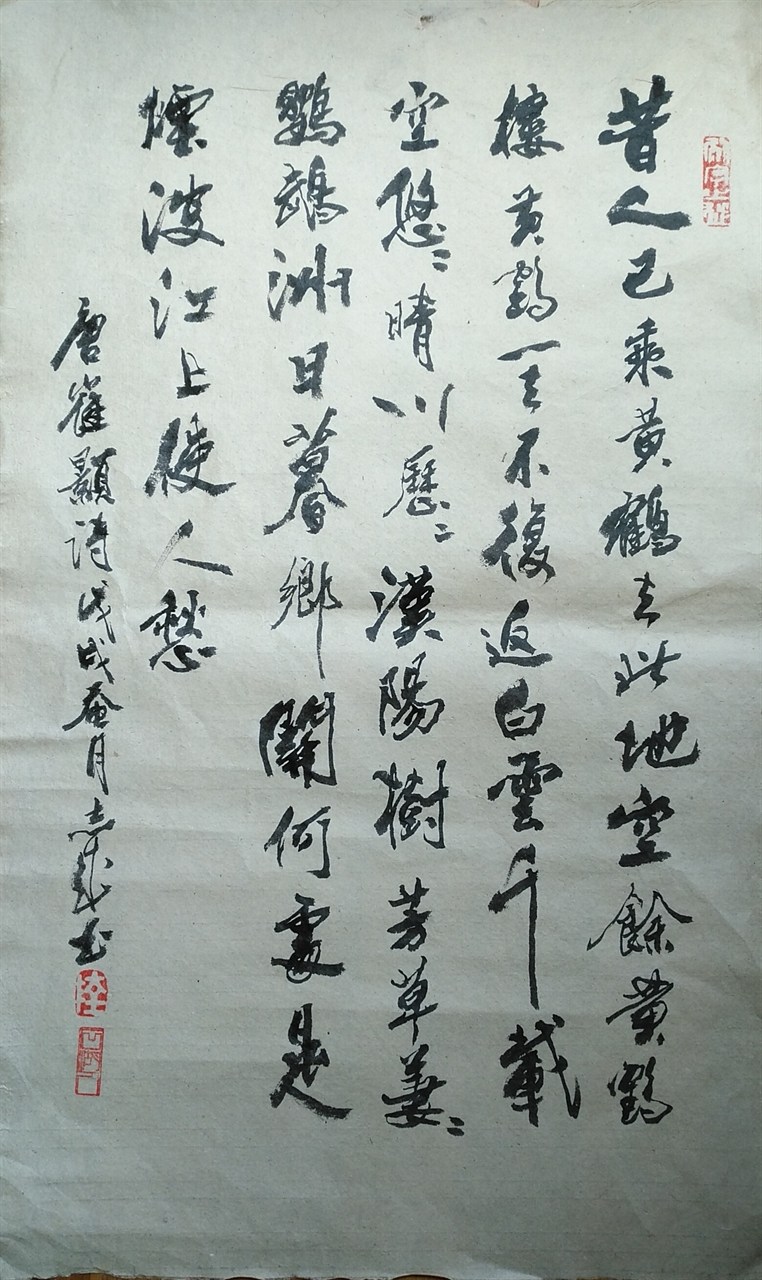 昔人已乘黃鶴去此地空餘黃鶴
樓黃鶴一去不復返白雲千載
空悠〻晴川歷〻漢陽樹芳草萋〻
鸚鵡洲日暮鄉關何處是
煙波江上使人愁
唐崔顥詩戊戌荷月志武書